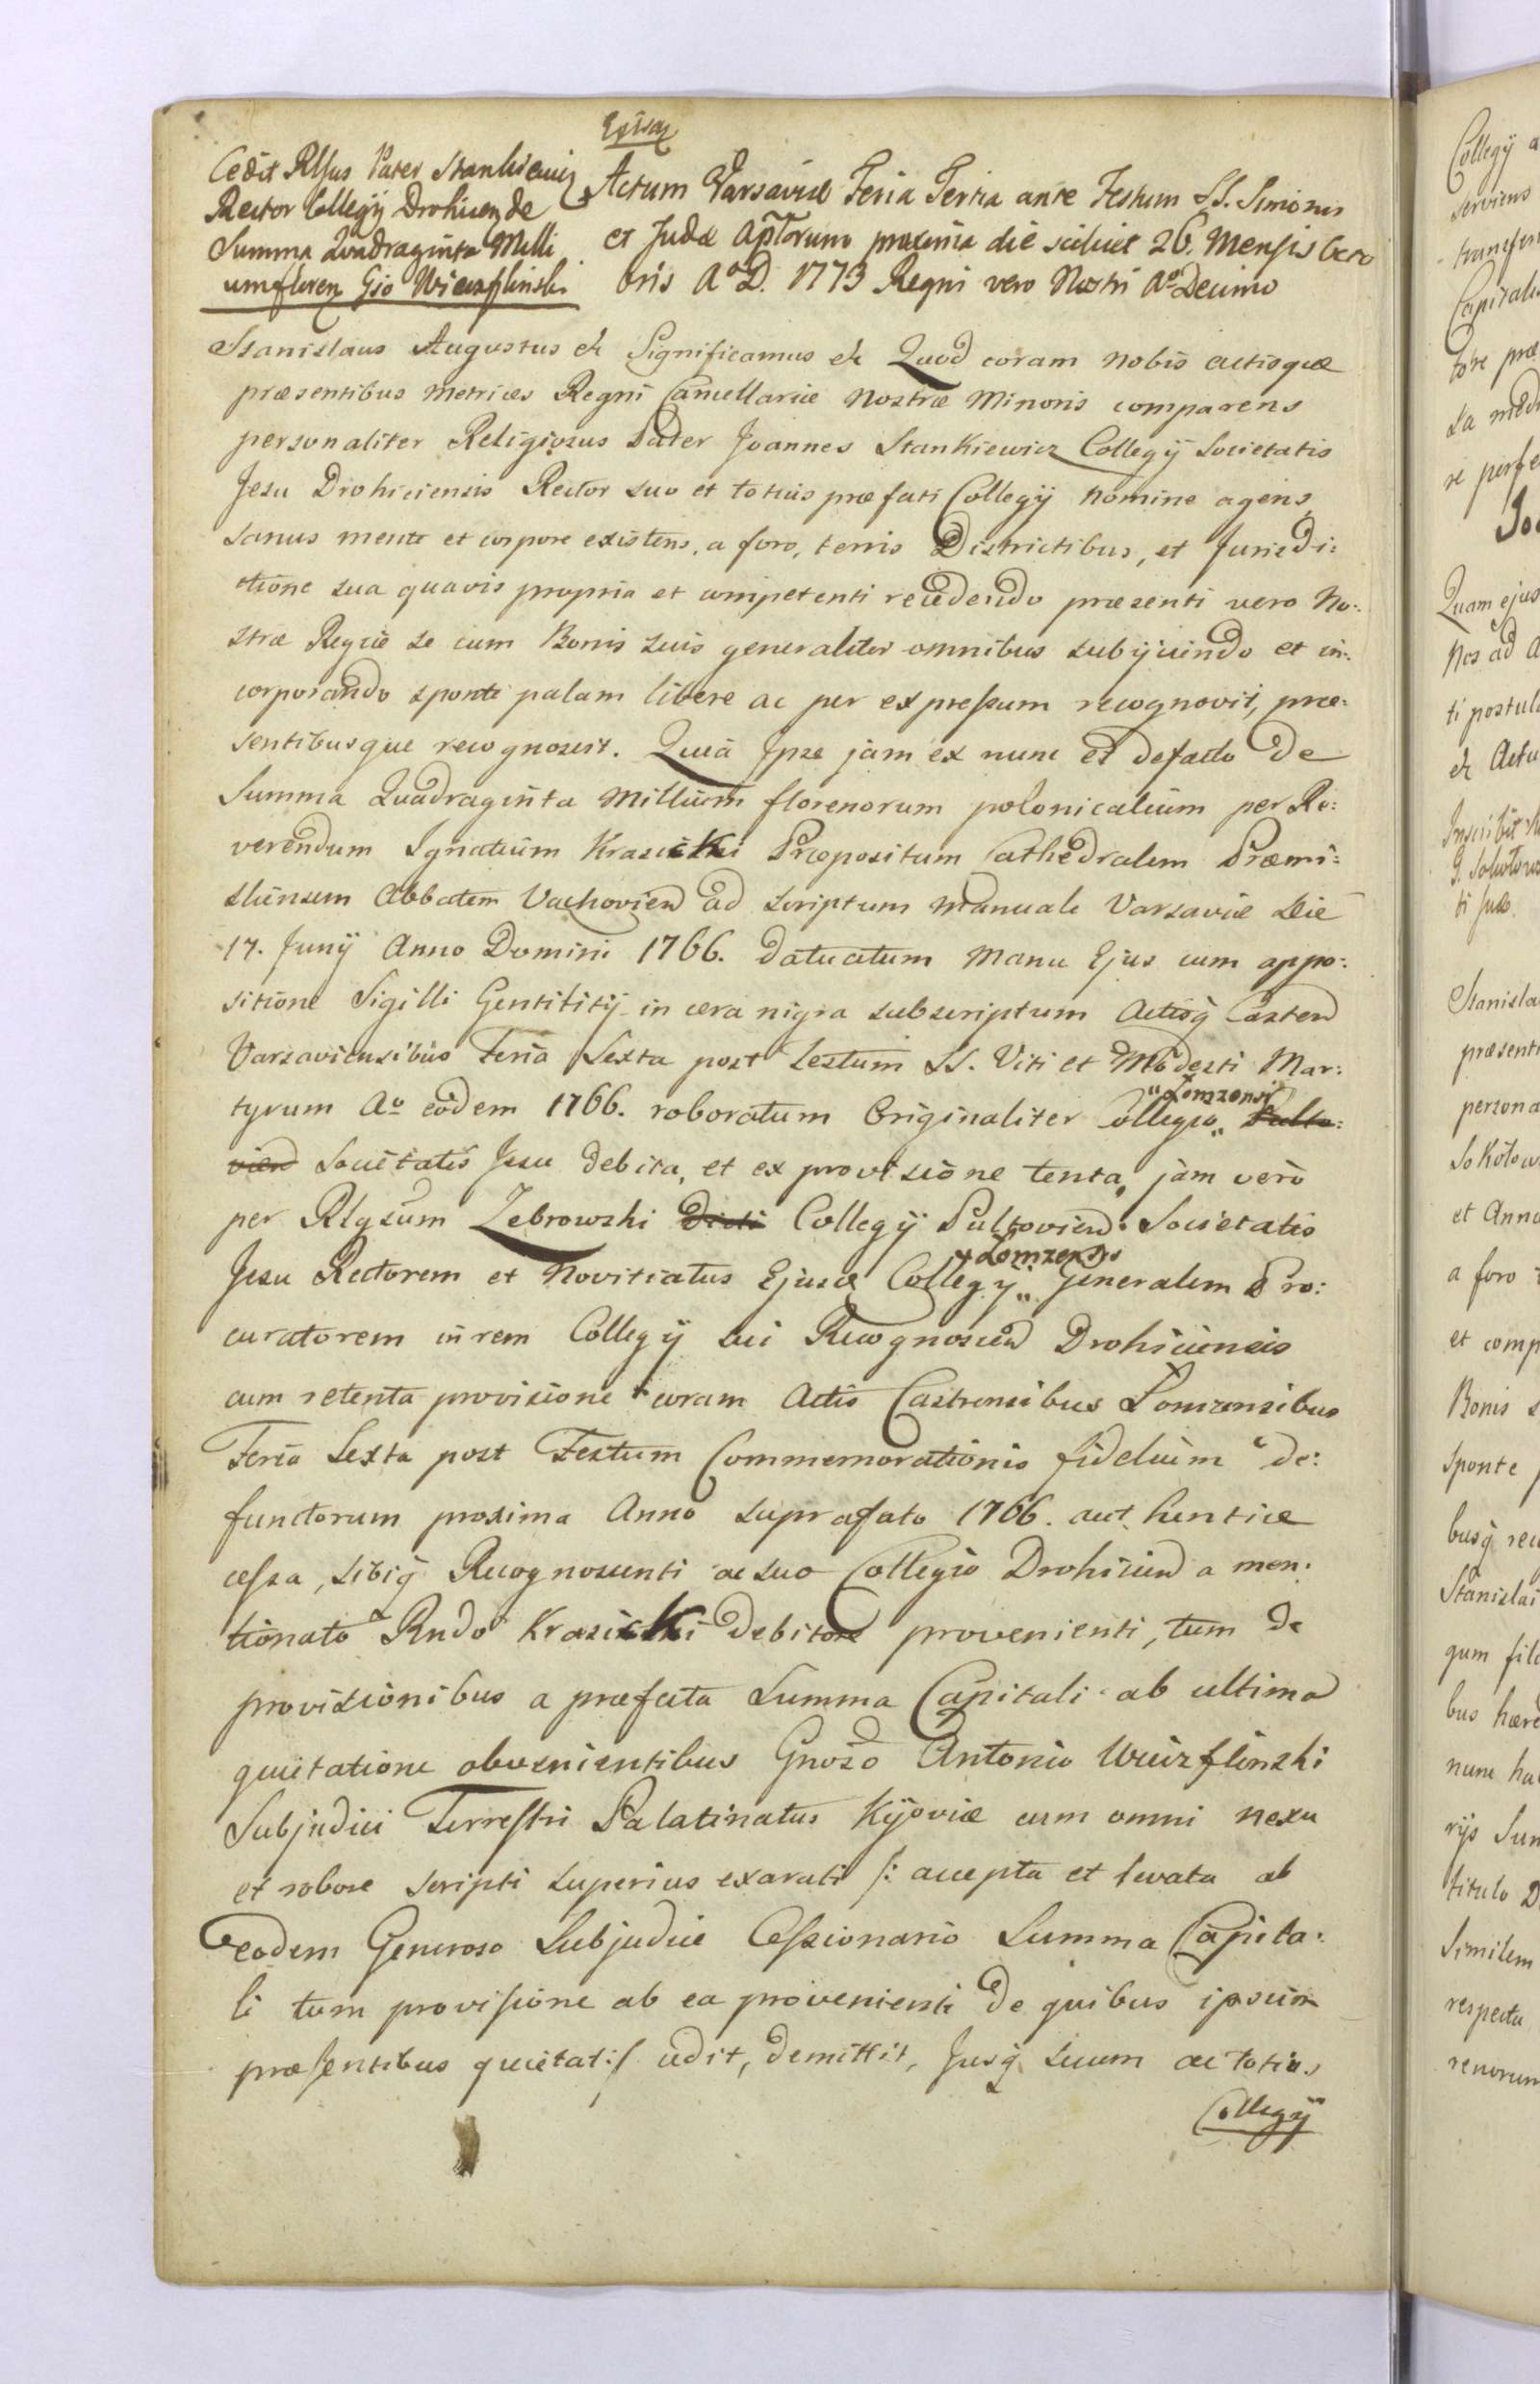 Cedit Rlgsus Pater Stankiewicz
Rector Collegÿ Drohicen de
Summa Quadraginta Milli
um floren Gso Wieszflinski
Actum Varsaviæ Feria Tertia ante Festum SS. Simonis
et Judæ Aptorum proxima die scilicet 26. Mensis Octo
bris A°D. 1773 Regni vero Nostri A° Decimo
Stanislaus Augustus etc Significamus etc Quod coram nobis actisque
præsentibus metrices Regni Cancellariæ Nostræ Minoris comparens
personaliter Religiosus Pater Joannes Stankiewicz Collegÿ Societatis
Jesu Drohiciensis Rector suo et totius præfati Collegÿ nomine agens,
sanus mente et corpore existens, a foro, terris Districtibus, et Jurisdi:
ctione sua quavis propria et competenti recedendo præsenti vero No:
stræ Regiæ se cum Bonis suis generaliter omnibus subÿciendo et in:
corporando sponte palam libere ac per expressum recognovit, præ:
sentibusque recognoscit. Quia Ipse jam ex nunc et defacto de
Summa Quadraginta Millium florenorum polonicalium per Re:
verendum Ignatium Krasicki Præpositum Cathedralem Præmi:
sliensem Abbatem Vachovien ad scriptum manuale Varsaviæ Die
17. Junÿ Anno Domini 1766. datuatum Manu Ejus cum appo:
sitione Sigilli Gentilitÿ in cera nigra subscriptum Actisq Castren
Varsaviensibus Feria Sexta post Festum SS. Viti et Modesti Mar:
tyrum A° eodem 1766. roboratum Originaliter Collegio „ "Lomzensi Pulto:
vien Societatis Jesu debita, et ex provisione tenta, jam vero
per Rlgsum Zebrowski dicti Collegÿ Pultovien: Societatis
Jesu Rectorem et Novitiatus Ejusd Collegÿ „ +Lomzensis Generalem Pro:
curatorem in rem Collegÿ sui Recognoscen Drohiciensis
cum retenta provisione coram Actis Castrensibus Lomzensibus
Feria Sexta post Festum Commemorationis fidelium de:
functorum proxima Anno suprafato 1766. authentice
cessa, sibiq Recognoscenti ac suo Collegio Drohicien a men:
tionato Rndo Krasicki debitore provenienti, tum de
provisionibus a præfata Summa Capitali ab ultima
quietatione obvenientibus Gnoso Antonio Wieszflinski
Subjudici Terrestri Palatinatus Kÿoviæ cum omni nexu
et robore scripti superius exarati /: accepta et levata ab
eodem Generoso Subjudice Cessionario Summa Capita:
li tum provisione ab ea provenienti de quibus ipsum
præsentibus quietat :/ cedit, demittit, Jusq suum ac totius
Collegÿ